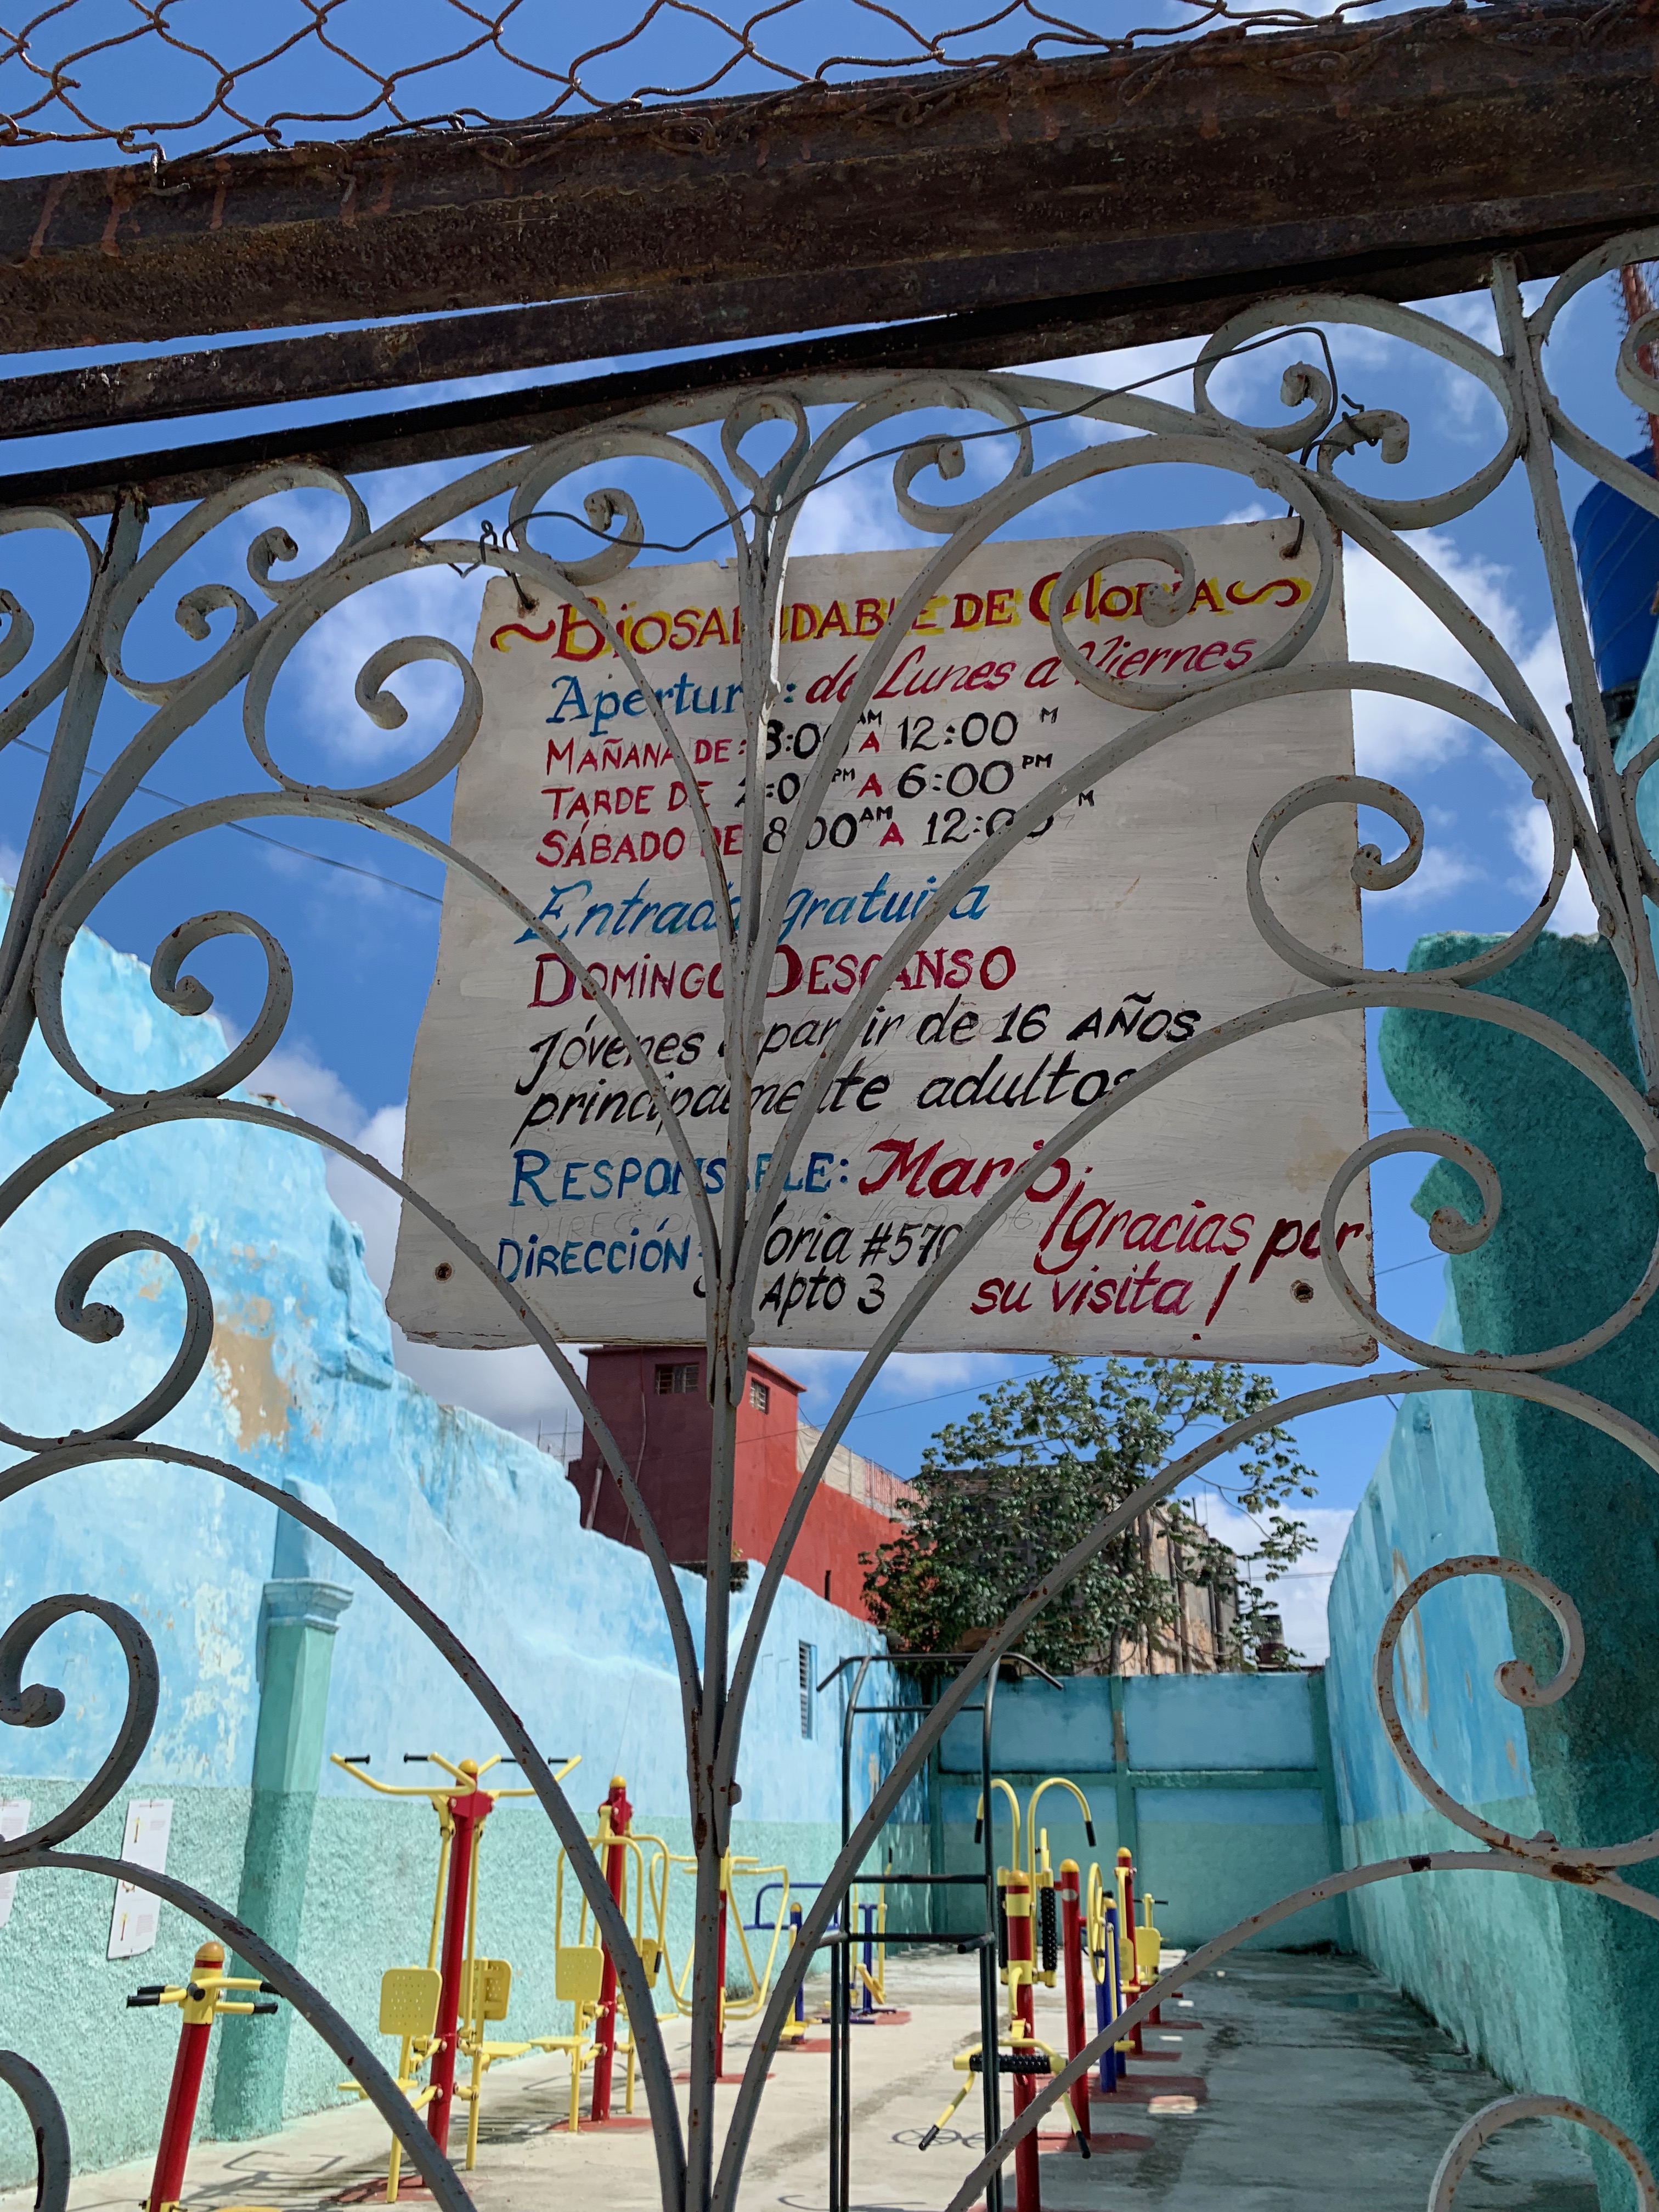 ~BIOSALUDABLE DE GLORIA~
Apertura: de Lunes a Viernes
MAÑANA DE: 8:00 AM A 12:00 M
TARDE DE 2:00 PM A 6:00 PM
SÁBADO DE 8:00 AM A 12:00 M
Entrada gratuita
DOMINGO DESCANSO
Jóvenes a partir de 16 AÑOS
principalmente adultos
RESPONSABLE: Mario.
DIRECCIÓN: Gloria #570
Apto 3
¡Gracias por
su visita!